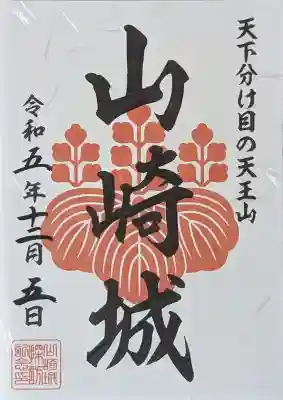 天下分け目の天王山
山崎城
令和五年十二月五日